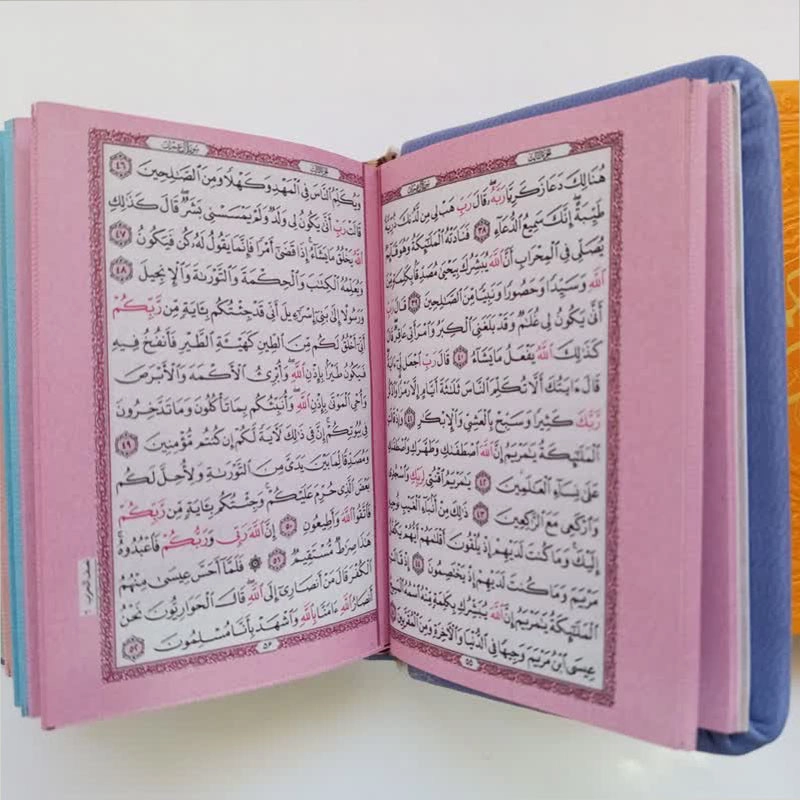 الجزء الثالث
سورة آل عمران
هُنَالِكَ دَعَا زَكَرِيَّا رَبَّهُۥ قَالَ رَبِّ هَبْ لِى مِن لَّدُنكَ ذُرِّيَّةً
طَيِّبَةً إِنَّكَ سَمِيعُ ٱلدُّعَآءِ ٣٨ فَنَادَتْهُ ٱلْمَلَٰٓئِكَةُ وَهُوَ قَآئِمٌ
يُصَلِّى فِى ٱلْمِحْرَابِ أَنَّ ٱللَّهَ يُبَشِّرُكَ بِيَحْيَىٰ مُصَدِّقًۢا بِكَلِمَةٍ مِّنَ
ٱللَّهِ وَسَيِّدًا وَحَصُورًا وَنَبِيًّا مِّنَ ٱلصَّٰلِحِينَ ٣٩ قَالَ رَبِّ
أَنَّىٰ يَكُونُ لِى غُلَٰمٌ وَقَدْ بَلَغَنِىَ ٱلْكِبَرُ وَٱمْرَأَتِى عَاقِرٌ قَالَ
كَذَٰلِكَ ٱللَّهُ يَفْعَلُ مَا يَشَآءُ ٤٠ قَالَ رَبِّ ٱجْعَل لِّىٓ ءَايَةً
قَالَ ءَايَتُكَ أَلَّا تُكَلِّمَ ٱلنَّاسَ ثَلَٰثَةَ أَيَّامٍ إِلَّا رَمْزًا وَٱذْكُر
رَّبَّكَ كَثِيرًا وَسَبِّحْ بِٱلْعَشِىِّ وَٱلْإِبْكَٰرِ ٤١ وَإِذْ قَالَتِ
ٱلْمَلَٰٓئِكَةُ يَٰمَرْيَمُ إِنَّ ٱللَّهَ ٱصْطَفَىٰكِ وَطَهَّرَكِ وَٱصْطَفَىٰكِ
عَلَىٰ نِسَآءِ ٱلْعَٰلَمِينَ ٤٢ يَٰمَرْيَمُ ٱقْنُتِى لِرَبِّكِ وَٱسْجُدِى
وَٱرْكَعِى مَعَ ٱلرَّٰكِعِينَ ٤٣ ذَٰلِكَ مِنْ أَنۢبَآءِ ٱلْغَيْبِ نُوحِيهِ
إِلَيْكَ وَمَا كُنتَ لَدَيْهِمْ إِذْ يُلْقُونَ أَقْلَٰمَهُمْ أَيُّهُمْ يَكْفُلُ
مَرْيَمَ وَمَا كُنتَ لَدَيْهِمْ إِذْ يَخْتَصِمُونَ ٤٤ إِذْ قَالَتِ
ٱلْمَلَٰٓئِكَةُ يَٰمَرْيَمُ إِنَّ ٱللَّهَ يُبَشِّرُكِ بِكَلِمَةٍ مِّنْهُ ٱسْمُهُ ٱلْمَسِيحُ
عِيسَى ٱبْنُ مَرْيَمَ وَجِيهًا فِى ٱلدُّنْيَا وَٱلْءَاخِرَةِ وَمِنَ ٱلْمُقَرَّبِينَ
٥٥
الجزء الثالث
سورة آل عمران
وَيُكَلِّمُ ٱلنَّاسَ فِى ٱلْمَهْدِ وَكَهْلًا وَمِنَ ٱلصَّٰلِحِينَ ٤٦
قَالَتْ رَبِّ أَنَّىٰ يَكُونُ لِى وَلَدٌ وَلَمْ يَمْسَسْنِى بَشَرٌ قَالَ كَذَٰلِكِ
ٱللَّهُ يَخْلُقُ مَا يَشَآءُ إِذَا قَضَىٰٓ أَمْرًا فَإِنَّمَا يَقُولُ لَهُۥ كُن فَيَكُونُ ٤٧
وَيُعَلِّمُهُ ٱلْكِتَٰبَ وَٱلْحِكْمَةَ وَٱلتَّوْرَىٰةَ وَٱلْإِنجِيلَ ٤٨
وَرَسُولًا إِلَىٰ بَنِىٓ إِسْرَٰٓءِيلَ أَنِّى قَدْ جِئْتُكُم بِـَٔايَةٍ مِّن رَّبِّكُمْ
أَنِّىٓ أَخْلُقُ لَكُم مِّنَ ٱلطِّينِ كَهَيْـَٔةِ ٱلطَّيْرِ فَأَنفُخُ فِيهِ
فَيَكُونُ طَيْرًۢا بِإِذْنِ ٱللَّهِ وَأُبْرِئُ ٱلْأَكْمَهَ وَٱلْأَبْرَصَ
وَأُحْىِ ٱلْمَوْتَىٰ بِإِذْنِ ٱللَّهِ وَأُنَبِّئُكُم بِمَا تَأْكُلُونَ وَمَا تَدَّخِرُونَ
فِى بُيُوتِكُمْ إِنَّ فِى ذَٰلِكَ لَءَايَةً لَّكُمْ إِن كُنتُم مُّؤْمِنِينَ ٤٩
وَمُصَدِّقًا لِّمَا بَيْنَ يَدَىَّ مِنَ ٱلتَّوْرَىٰةِ وَلِأُحِلَّ لَكُم
بَعْضَ ٱلَّذِى حُرِّمَ عَلَيْكُمْ وَجِئْتُكُم بِـَٔايَةٍ مِّن رَّبِّكُمْ
فَٱتَّقُوا۟ ٱللَّهَ وَأَطِيعُونِ ٥٠ إِنَّ ٱللَّهَ رَبِّى وَرَبُّكُمْ فَٱعْبُدُوهُ
هَٰذَا صِرَٰطٌ مُّسْتَقِيمٌ ٥١ ۞ فَلَمَّآ أَحَسَّ عِيسَىٰ مِنْهُمُ
ٱلْكُفْرَ قَالَ مَنْ أَنصَارِىٓ إِلَى ٱللَّهِ قَالَ ٱلْحَوَارِيُّونَ نَحْنُ
أَنصَارُ ٱللَّهِ ءَامَنَّا بِٱللَّهِ وَٱشْهَدْ بِأَنَّا مُسْلِمُونَ ٥٢
٥٦